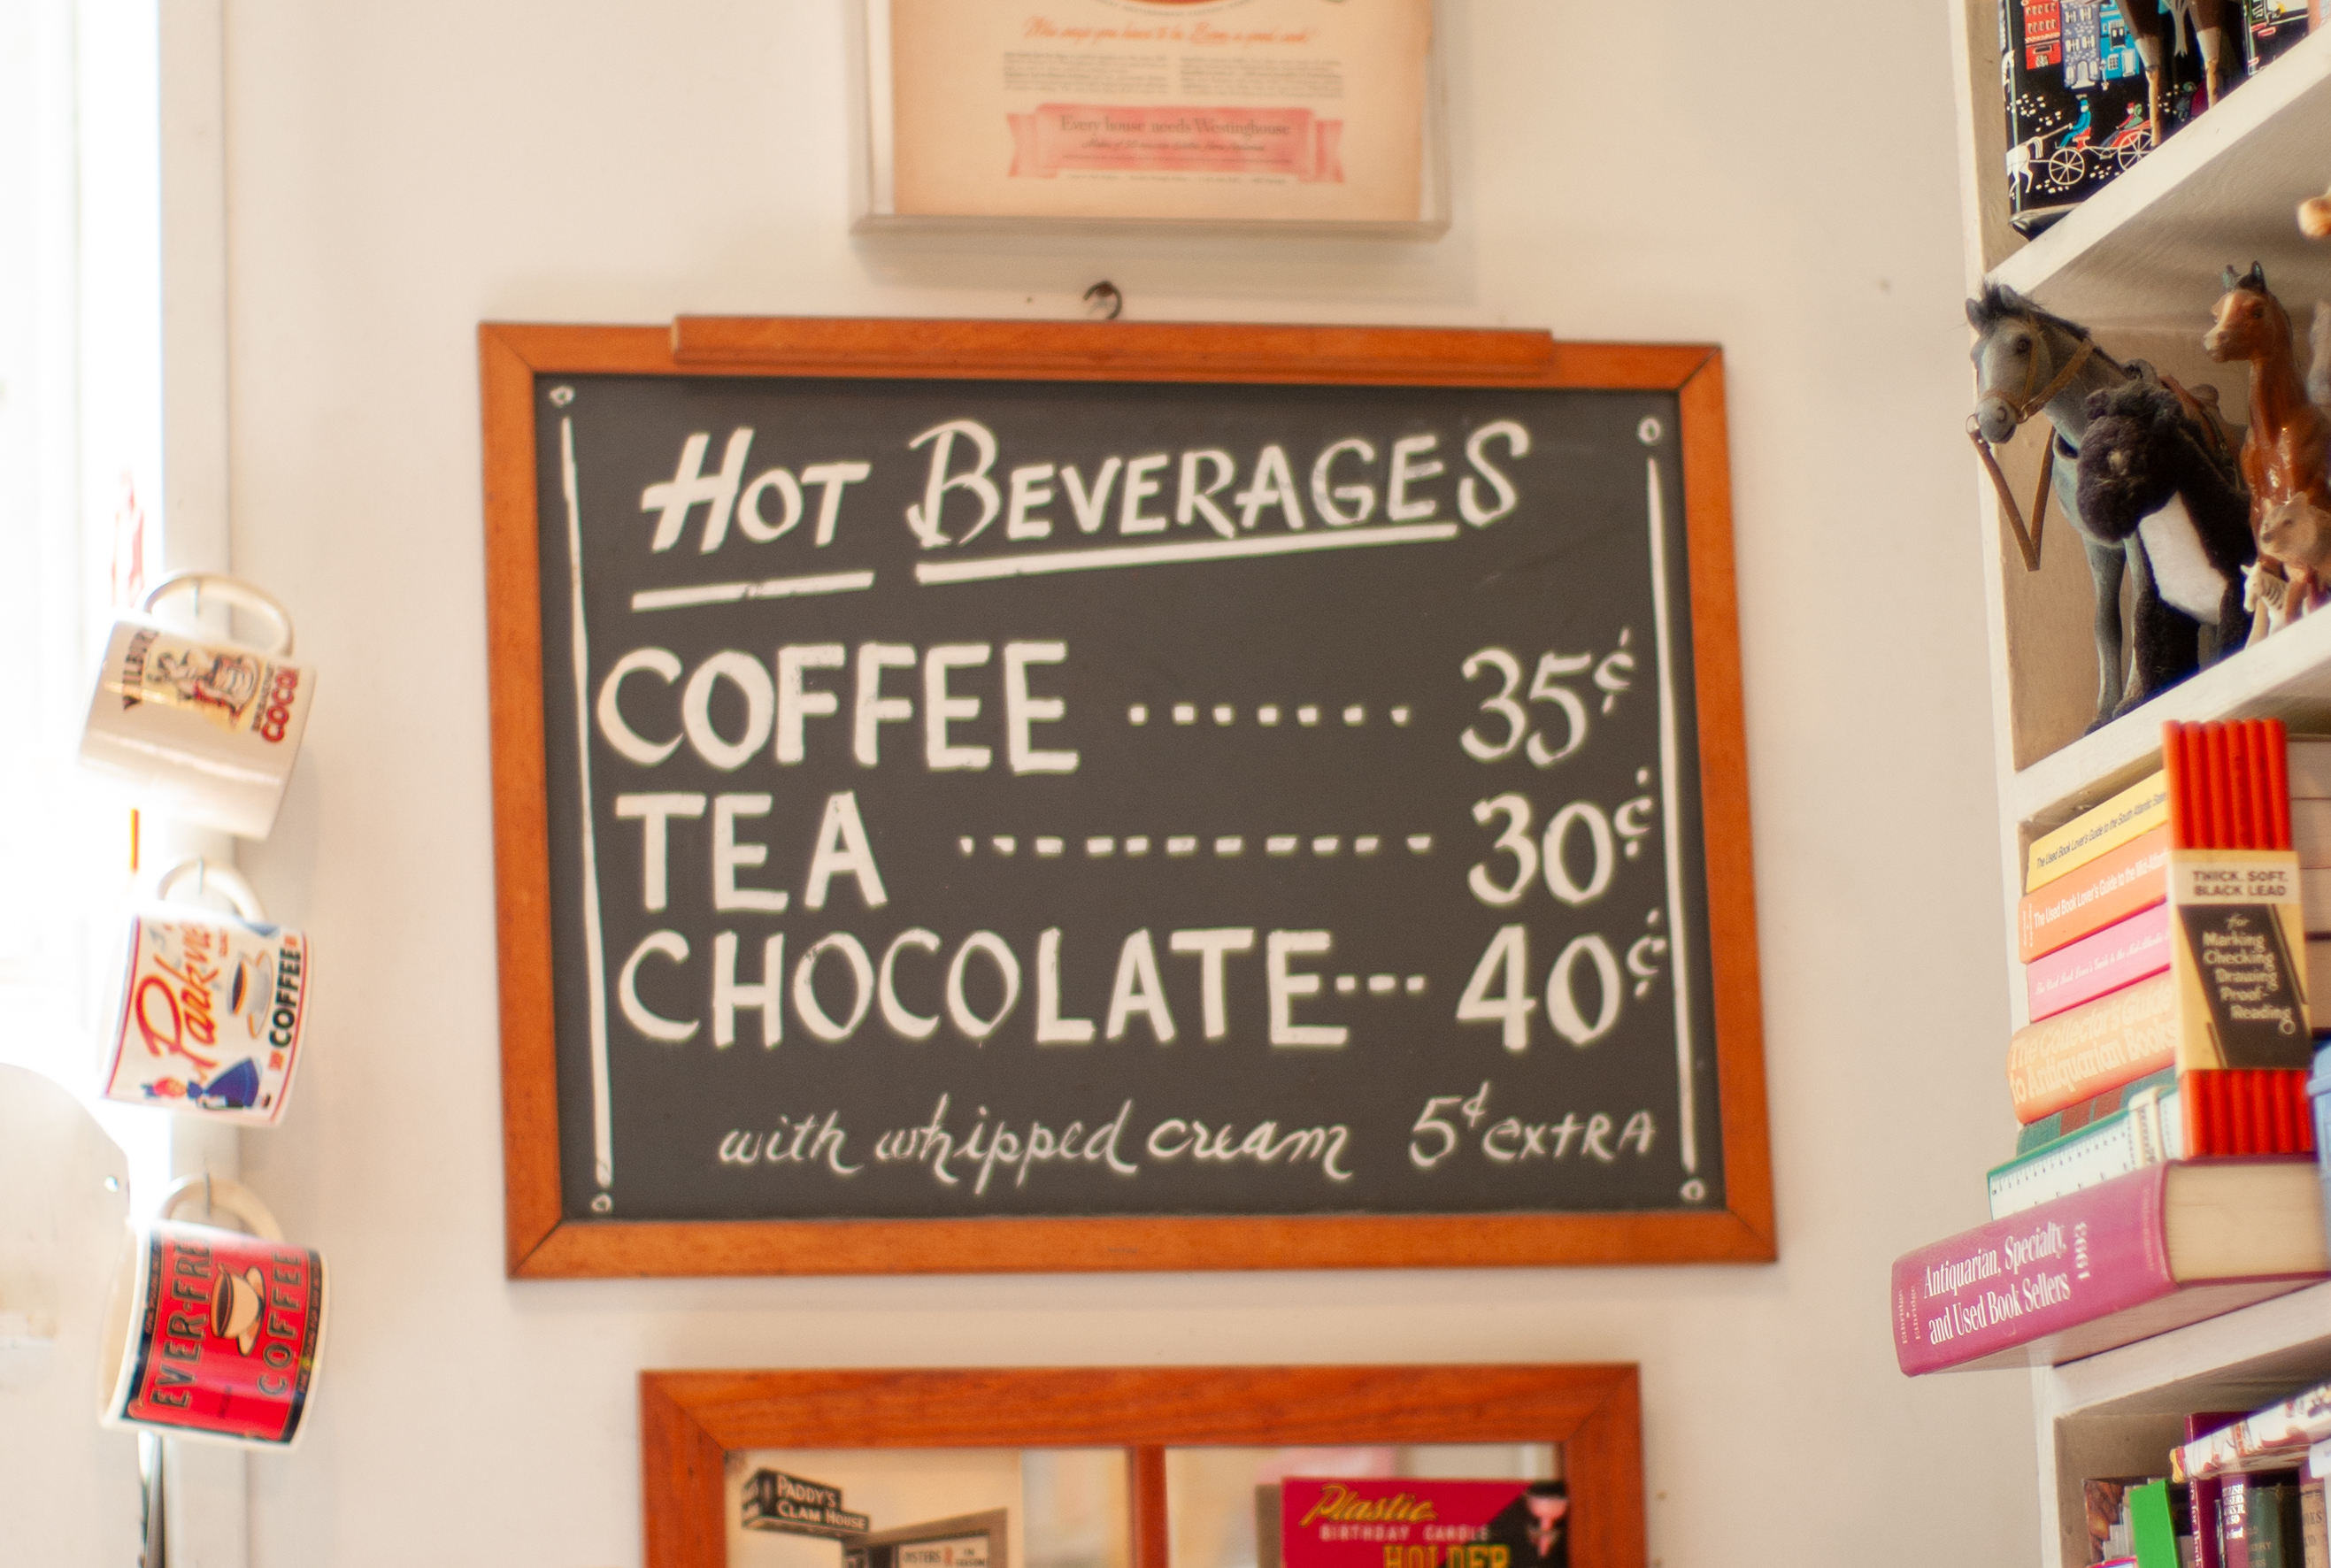 Who says you have to be Born a good cook?
Every house needs Westinghouse
HOT BEVERAGES
COFFEE ······· 35¢
TEA ··········· 30¢
CHOCOLATE--- 40¢
with whipped cream 5¢ extra
WILBUR'S
BREAKFAST
COCOA
Parkview
COFFEE
EVER-FRE
COFFEE
The Used Book Lover's Guide to the South Atlantic States
The Used Book Lover's Guide to the Mid-Atlantic
The Collector's Guide
to Antiquarian Books
THICK, SOFT,
BLACK LEAD
for
Marking
Checking
Drawing
Proof-
Reading
Antiquarian, Specialty,
and Used Book Sellers
1993
PADDY'S
CLAM HOUSE
OYSTERS
Plastic
BIRTHDAY CANDLE
HOLDER